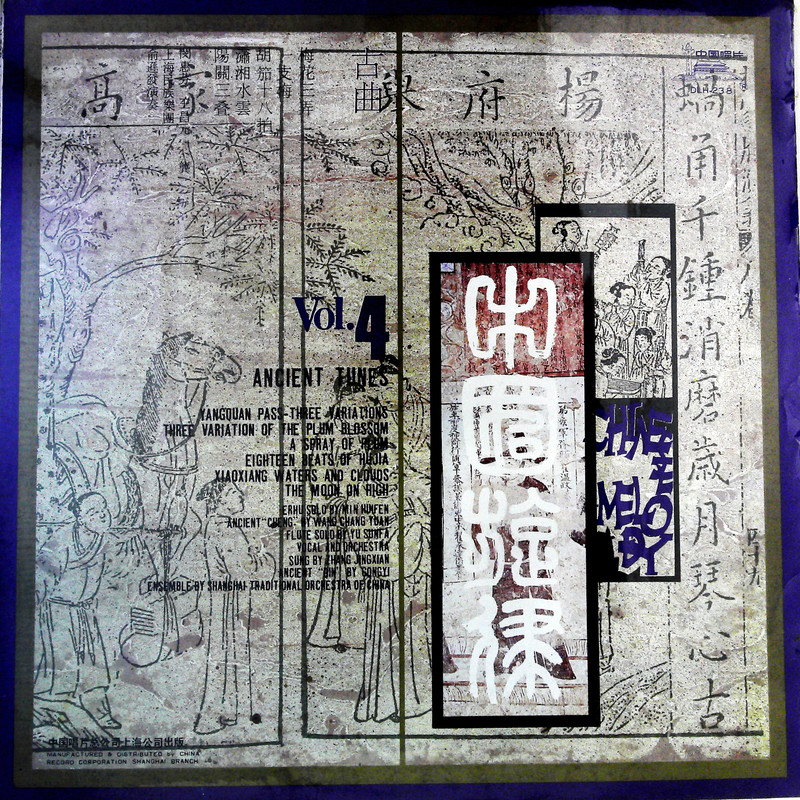 中国唱片
DLH-238
古曲
梅花三弄
胡茄十八拍
瀟湘水雲
陽關三叠
上海民族樂團
俞遜發演奏
楊
府
高
蝸角千鍾消磨歲月琴心古
Vol. 4
ANCIENT TUNES
YANGQUAN PASS-THREE VARIATIONS
THREE VARIATION OF THE PLUM BLOSSOM
A SPRAY OF PLUM
EIGHTEEN BEATS OF HUJIA
XIAOXIANG WATERS AND CLOUDS
THE MOON ON HIGH
ERHU SOLO BY MIN HUIFEN
ANCIENT "CHENG" BY WANG CHANG YUAN
FLUTE SOLO BY YU SUNFA
VOCAL AND ORCHESTRA
SUNG BY ZHANG JINGXIAN
ANCIENT "QIN" BY GONGYI
ENSEMBLE BY SHANGHAI TRADITIONAL ORCHESTRA OF CHINA
中國旋律
CHINESE
MELODY
中国唱片总公司上海公司出版
MANUFACTURED & DISTRIBUTED by CHINA
RECORD CORPORATION SHANGHAI BRANCH